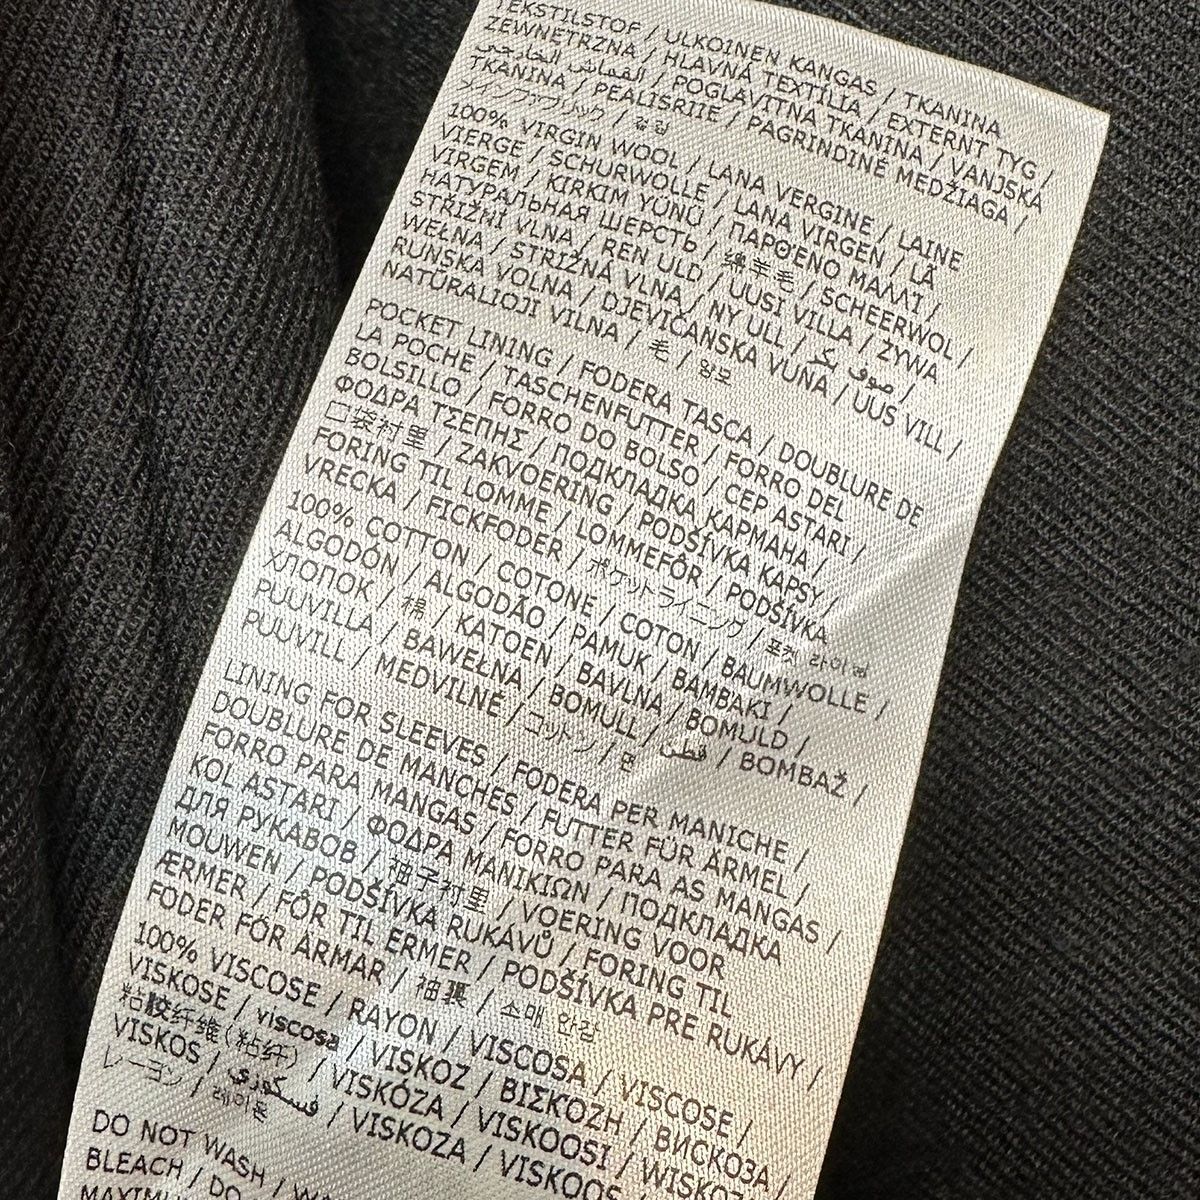 TEKSTILSTOF / ULKOINEN KANGAS / TKANINA
ZEWNĘTRZNA / HLAVNÁ TEXTÍLIA / EXTERNT TYG /
القماش الخارجي / POGLAVITNA TKANINA / VANJSKA
TKANINA / PEALISRIIE / PAGRINDINĖ MEDŽIAGA /
メインファブリック / 겉감
100% VIRGIN WOOL / LANA VERGINE / LAINE
VIERGE / SCHURWOLLE / LANA VIRGEN / LÃ
VIRGEM / KIRKIM YÜNÜ / ΠΑΡΘΕΝΟ ΜΑΛΛΙ /
НАТУРАЛЬНАЯ ШЕРСТЬ / 绵羊毛 / SCHEERWOL /
STŘIŽNÍ VLNA / REN ULD / UUSI VILLA / ŻYWA
WEŁNA / STRIŽNÁ VLNA / NY ULL / صوف بكر /
RUNSKA VOLNA / DJEVIČANSKA VUNA / UUS VILL /
NATŪRALIOJI VILNA / 毛 / 양모
POCKET LINING / FODERA TASCA / DOUBLURE DE
LA POCHE / TASCHENFUTTER / FORRO DEL
BOLSILLO / FORRO DO BOLSO / CEP ASTARI /
ΦΟΔΡΑ ΤΣΕΠΗΣ / ПОДКЛАДКА КАРМАНА /
口袋衬里 / ZAKVOERING / PODŠÍVKA KAPSY /
FORING TIL LOMME / LOMMEFÔR / PODŠÍVKA
VRECKA / FICKFODER / ポケットライニング / 포켓 라이닝
100% COTTON / COTONE / COTON / BAUMWOLLE /
ALGODÓN / ALGODÃO / PAMUK / BAMBAKI /
ХЛОПОК / 棉 / KATOEN / BAVLNA / BOMULD /
PUUVILLA / BAWEŁNA / BOMULL / قطن / BOMBAŽ /
PUUVILL / MEDVILNĖ / コットン / 면
LINING FOR SLEEVES / FODERA PER MANICHE /
DOUBLURE DE MANCHES / FUTTER FÜR ÄRMEL /
FORRO PARA MANGAS / FORRO PARA AS MANGAS /
KOL ASTARI / ΦΟΔΡΑ ΜΑΝΙΚΙΩΝ / ПОДКЛАДКА
ДЛЯ РУКАВОВ / 袖子衬里 / VOERING VOOR
MOUWEN / PODŠÍVKA RUKÁVŮ / FORING TIL
ÆRMER / FÔR TIL ERMER / PODŠÍVKA PRE RUKÁVY /
FODER FÖR ÄRMAR / 袖裏 / 소매 안감
100% VISCOSE / RAYON / VISCOSA / VISCOSE /
VISKOSE / viscosa / VISKOZ / ΒΙΣΚΟΖΗ / ВИСКОЗА /
粘胶纤维(粘纤) / VISKÓZA / VISKOOSI / WISKOZA
VISKOS / فسكوزي / VISKOZA / VISKOOS
レーヨン / 레이온
DO NOT WASH
BLEACH / DO